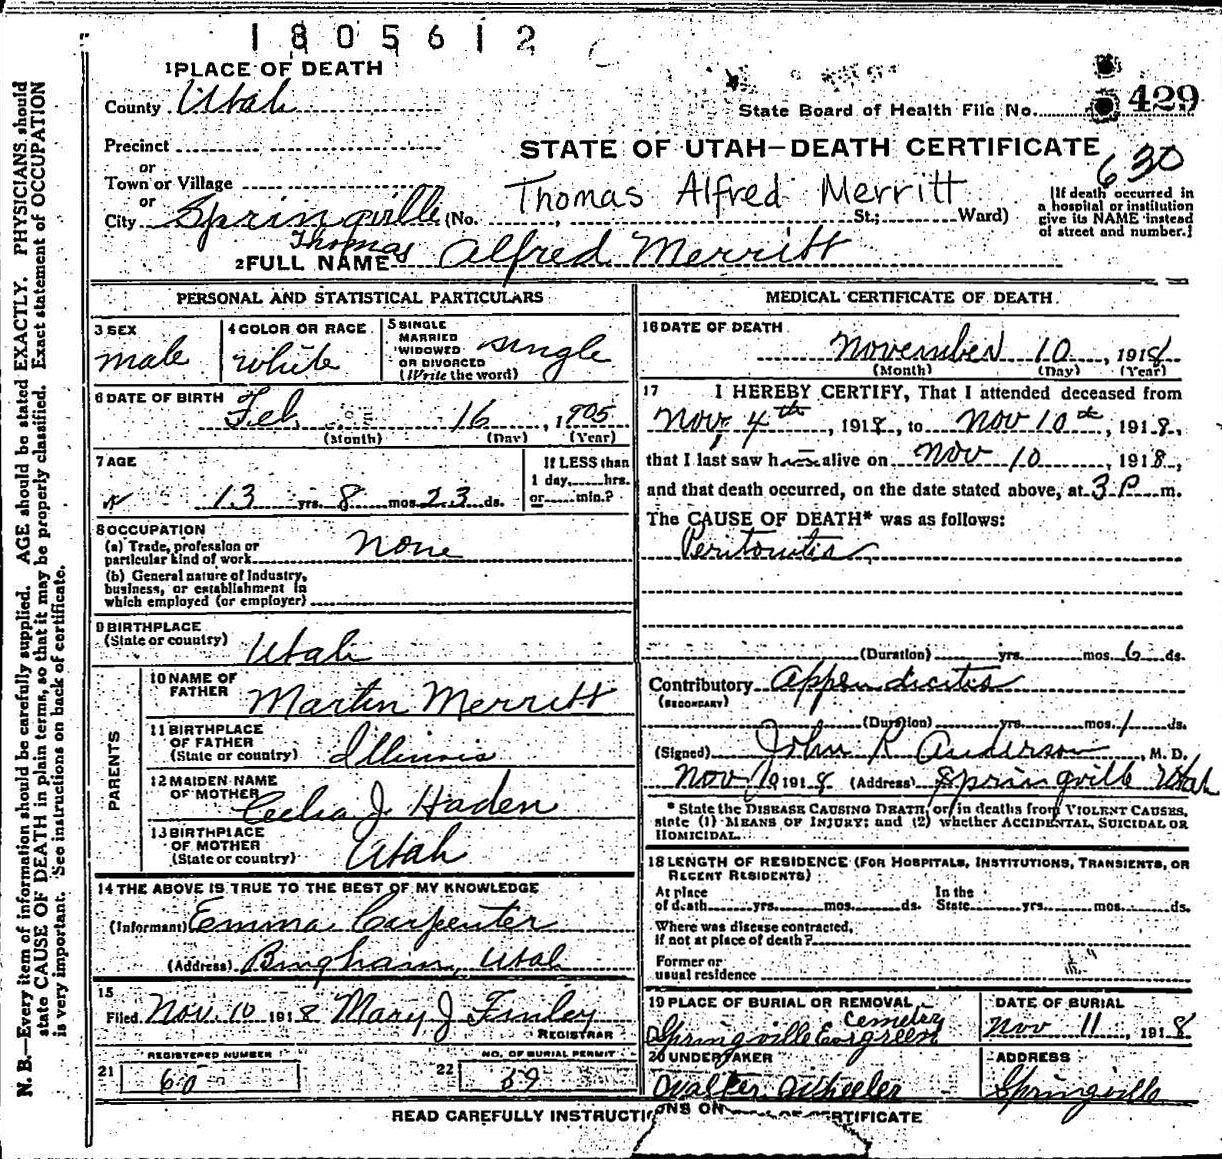 1805612
1 PLACE OF DEATH
County Utah
State Board of Health File No. 429
Precinct
or
Town or Village
or
City Springville (No. St.; Ward)
STATE OF UTAH—DEATH CERTIFICATE
630
Thomas Alfred Merritt
[If death occurred in
a hospital or institution
give its NAME instead
of street and number.]
Thomas
2 FULL NAME Alfred Merritt
PERSONAL AND STATISTICAL PARTICULARS
3 SEX
male
4 COLOR OR RACE
white
5 SINGLE
MARRIED
WIDOWED
OR DIVORCED
(Write the word)
single
6 DATE OF BIRTH
Feb 16, 1905
(Month) (Day) (Year)
7 AGE
13 yrs. 8 mos. 23 ds.
If LESS than
1 day, hrs.
or min.?
8 OCCUPATION
(a) Trade, profession or
particular kind of work None
(b) General nature of Industry,
business, or establishment in
which employed (or employer)
9 BIRTHPLACE
(State or country) Utah
PARENTS
10 NAME OF
FATHER Martin Merritt
11 BIRTHPLACE
OF FATHER
(State or country) Illinois
12 MAIDEN NAME
OF MOTHER Celia J. Haden
13 BIRTHPLACE
OF MOTHER
(State or country) Utah
14 THE ABOVE IS TRUE TO THE BEST OF MY KNOWLEDGE
(Informant) Emma Carpenter
(Address) Bingham, Utah
15
Filed Nov. 10 1918 Mary J Finley
REGISTRAR
REGISTERED NUMBER
21 60
NO. OF BURIAL PERMIT
22 59
MEDICAL CERTIFICATE OF DEATH
16 DATE OF DEATH
November 10, 1918
(Month) (Day) (Year)
17 I HEREBY CERTIFY, That I attended deceased from
Nov. 4th, 1918, to Nov 10th, 1918,
that I last saw him alive on Nov 10, 1918,
and that death occurred, on the date stated above, at 3 P. m.
The CAUSE OF DEATH* was as follows:
Peritonitis
(Duration) yrs. mos. 6 ds.
Contributory Appendicitis
(SECONDARY)
(Duration) yrs. mos. 1 ds.
(Signed) John R Anderson, M. D.
Nov 10 1918 (Address) Springville Utah
* State the DISEASE CAUSING DEATH, or in deaths from VIOLENT CAUSES,
state (1) MEANS OF INJURY; and (2) whether ACCIDENTAL, SUICIDAL OR
HOMICIDAL.
18 LENGTH OF RESIDENCE (FOR HOSPITALS, INSTITUTIONS, TRANSIENTS, OR
RECENT RESIDENTS)
At place
of death yrs. mos. ds.
In the
State yrs. mos. ds.
Where was disease contracted,
if not at place of death?
Former or
usual residence
19 PLACE OF BURIAL OR REMOVAL
Cemetery
Springville Evergreen
DATE OF BURIAL
Nov 11, 1918
20 UNDERTAKER
Walter Wheeler
ADDRESS
Springville
READ CAREFULLY INSTRUCTIONS ON CERTIFICATE
N. B.—Every item of information should be carefully supplied. AGE should be stated EXACTLY. PHYSICIANS should
state CAUSE OF DEATH in plain terms, so that it may be properly classified. Exact statement of OCCUPATION
is very important. See instructions on back of certificate.